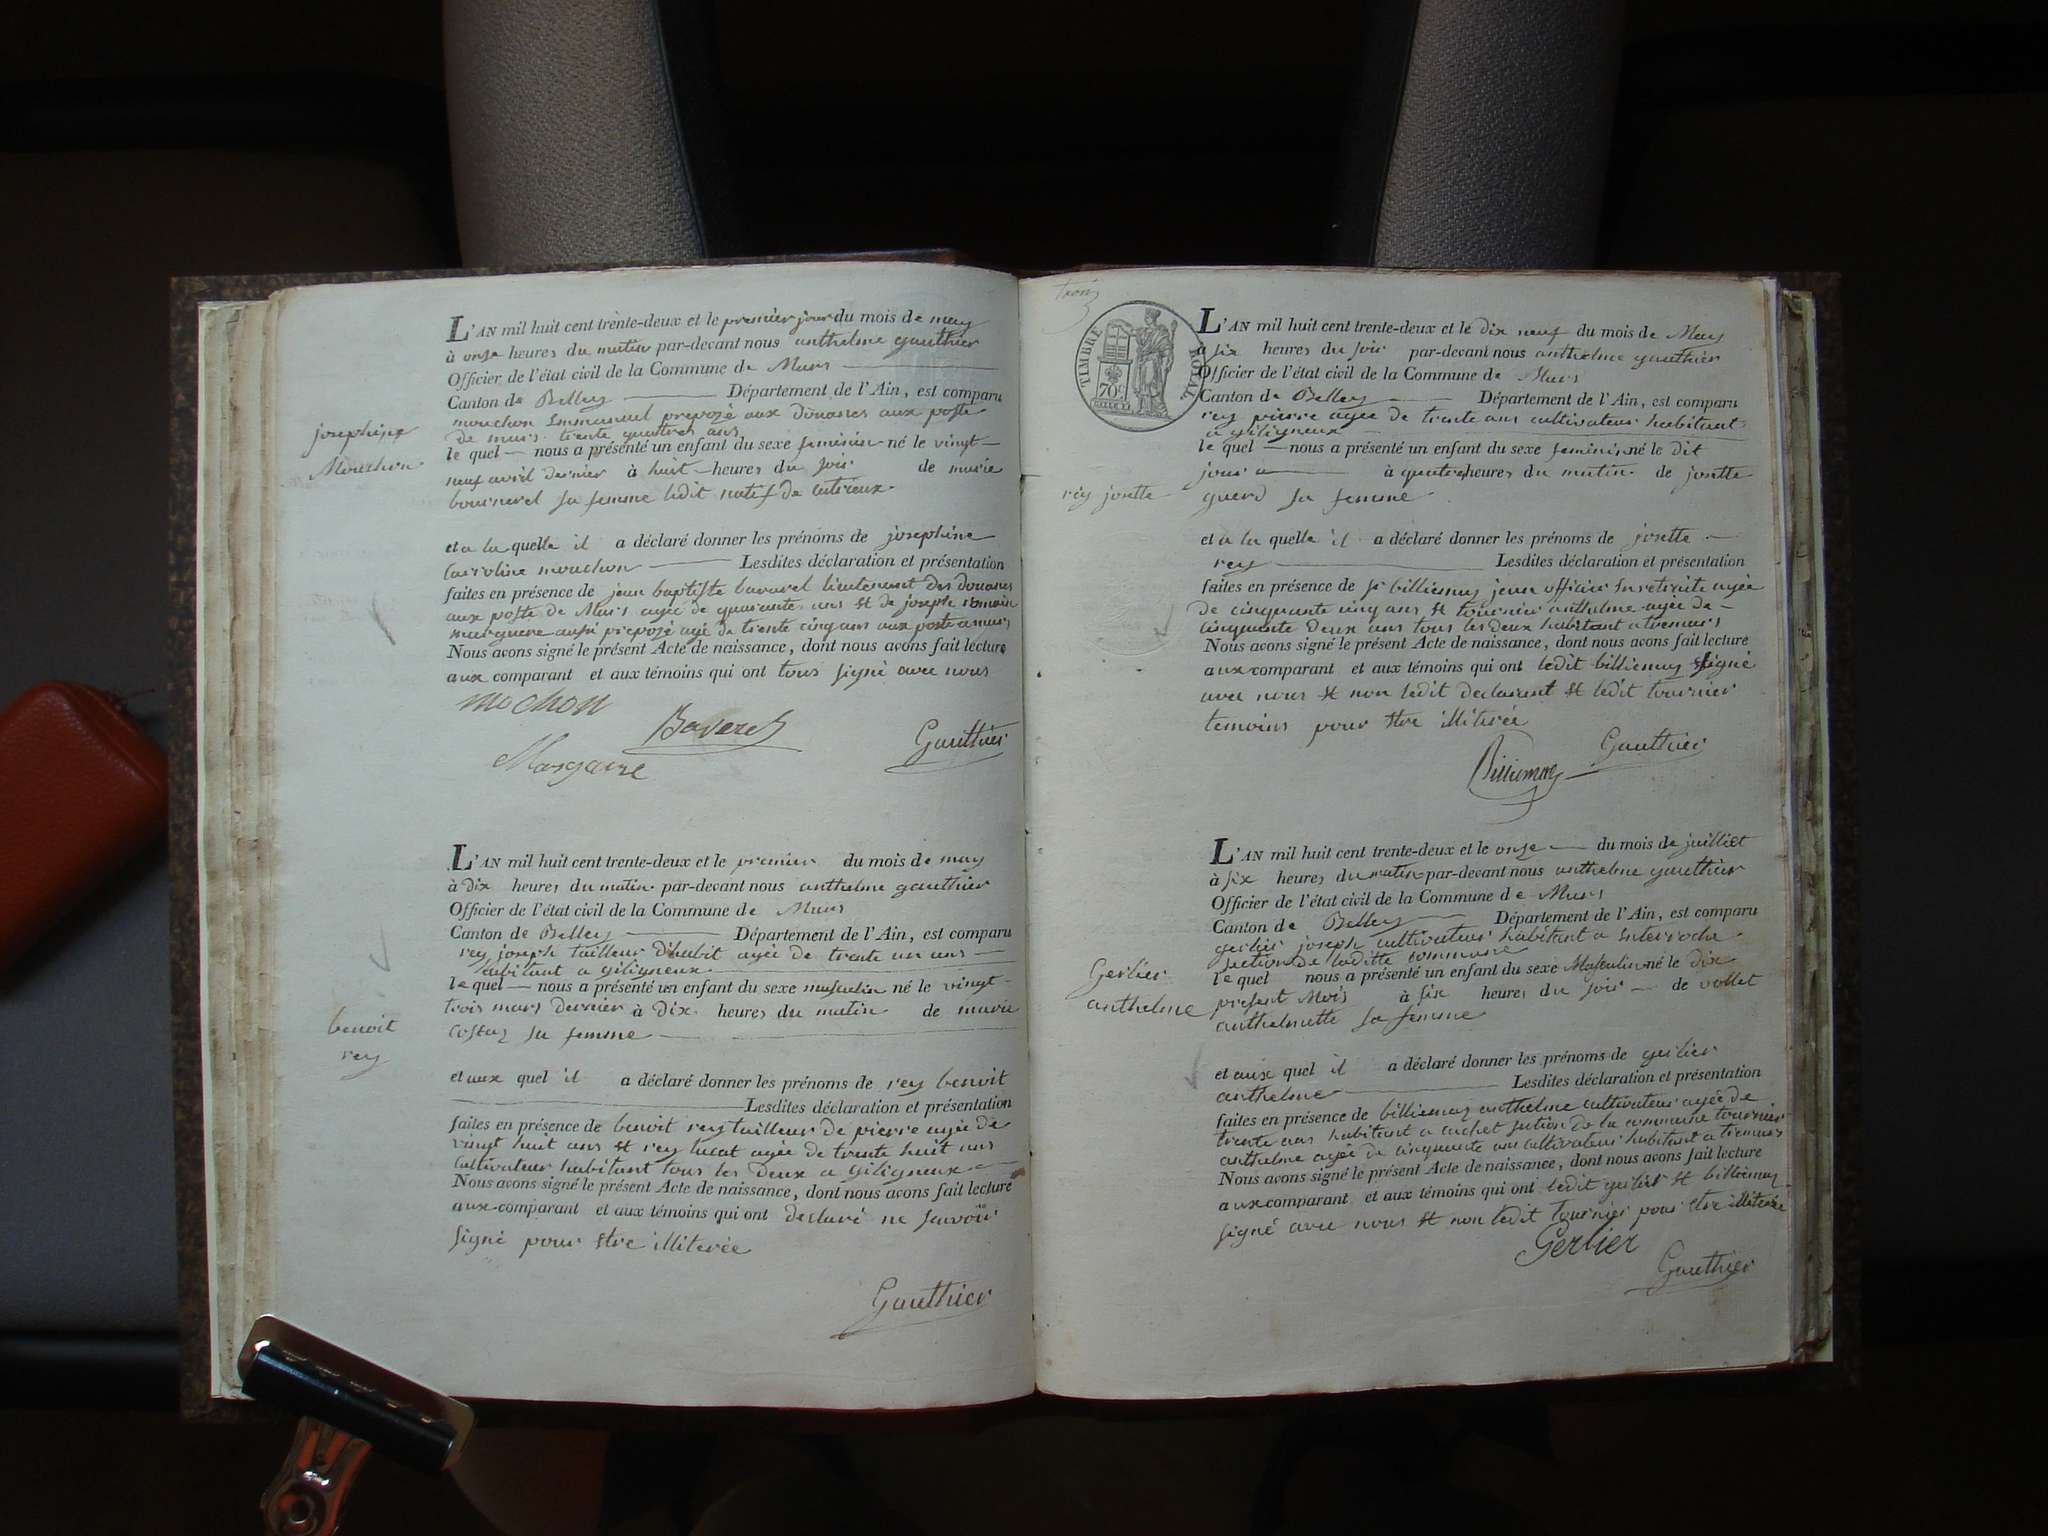 L'AN mil huit cent trente-deux et le premier jour du mois de may
à onze heures du matin par-devant nous anthelme gauthier
Officier de l'état civil de la Commune de Murs
Canton de Belley Département de l'Ain, est comparu
mouchon Emmanuel prepozé aux douanes aux poste
de murs. trente quatre ans
le quel nous a présenté un enfant du sexe feminin né le vingt
neuf avril dernier à huit heures du soir de marie
sa femme ledit natif de
et a la quelle il a déclaré donner les prénoms de josephine
caroline mouchon Lesdites déclaration et présentation
faites en présence de jean baptiste bavarel lieutenant des douanes
aux poste de Murs agée de quarante ans et de joseph romain
marguere aussi prepozé agé de trente cinq ans aux poste a murs
Nous avons signé le présent Acte de naissance, dont nous avons fait lecture
aux comparant et aux témoins qui ont tous signé avec nous
mochon
Baverel
Gauthier
Margaire
josephine
Mouchon
L'AN mil huit cent trente-deux et le premier du mois de may
à dix heures du matin par-devant nous anthelme gauthier
Officier de l'état civil de la Commune de Murs
Canton de Belley Département de l'Ain, est comparu
rey joseph tailleur d'habit agée de trente un ans
habitant a giligneux
le quel nous a présenté un enfant du sexe masculin né le vingt
trois mars dernier à dix heures du matin de marie
costaz sa femme
et aux quel il a déclaré donner les prénoms de rey benoit
Lesdites déclaration et présentation
faites en présence de benoit rey tailleur de pierre agée de
vingt huit ans et rey lucat agée de trente huit ans
cultivateur habitant tous les deux a giligneux
Nous avons signé le présent Acte de naissance, dont nous avons fait lecture
aux comparant et aux témoins qui ont declaré ne savoir
signé pour etre illiterée
Gauthier
benoit
rey
trois
TIMBRE ROYAL
70 c
L'AN mil huit cent trente-deux et le dix neuf du mois de May
à six heures du soir par-devant nous anthelme gauthier
Officier de l'état civil de la Commune de Murs
Canton de Belley Département de l'Ain, est comparu
rey pierre agée de trente ans cultivateur habitant
a giligneux
le quel nous a présenté un enfant du sexe feminin né le dit
jour à quatre heures du matin de josette
guerd sa femme
et a la quelle il a déclaré donner les prénoms de josette
rey Lesdites déclaration et présentation
faites en présence de sr billiemaz jean officier en retraite agée
de cinquante cinq ans et tournier anthelme agée de
cinquante deux ans tous les deux habitant a tremurs
Nous avons signé le présent Acte de naissance, dont nous avons fait lecture
aux comparant et aux témoins qui ont ledit billiemaz signé
avec nous et non ledit declarant et ledit tournier
temoins pour etre illiterée
Gauthier
Billiemaz
rey josette
L'AN mil huit cent trente-deux et le onze du mois de juilliet
à six heures du matin par-devant nous anthelme gauthier
Officier de l'état civil de la Commune de Murs
Canton de Belley Département de l'Ain, est comparu
gerlier joseph cultivateur habitant a Enterroche
section de ladite commune
le quel nous a présenté un enfant du sexe Masculin né le dix
present Mois à six heures du soir de vollet
anthelmette sa femme
et aux quel il a déclaré donner les prénoms de gerlier
anthelme Lesdites déclaration et présentation
faites en présence de billiemaz anthelme cultivateur agée de
trente ans habitant a cachet section de la commune tournier
anthelme agée de cinquante ans cultivateur habitant a tremurs
Nous avons signé le présent Acte de naissance, dont nous avons fait lecture
aux comparant et aux témoins qui ont ledit gerlier et billiemaz
signé avec nous et non ledit tournier pour etre illiterée
Gerlier
Gauthier
Gerlier
anthelme